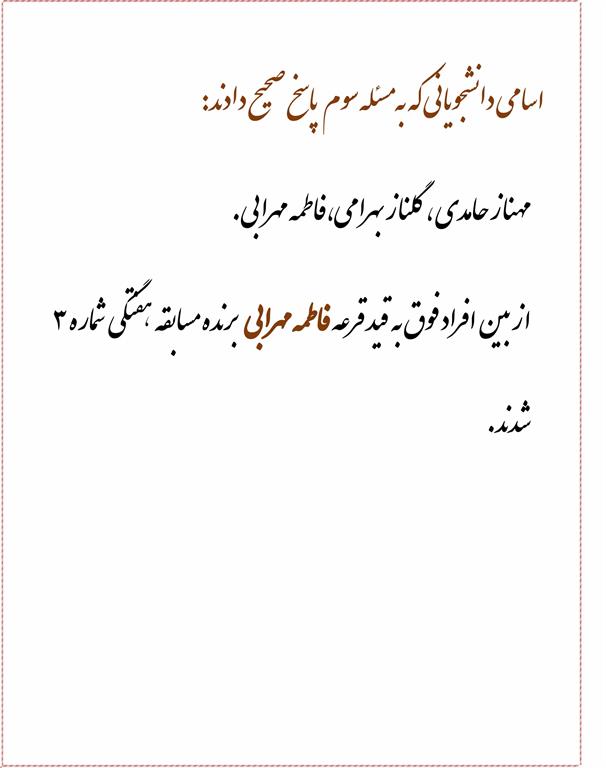 اسامی دانشجویانی که به مسئله سوم پاسخ صحیح دادند:
مهناز حامدی، گلناز بهرامی، فاطمه مهرابی.
از بین افراد فوق به قید قرعه فاطمه مهرابی برنده مسابقه هفتگی شماره ۳
شدند.